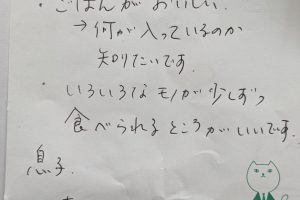 ・ごはんがおいしい.
→何が入っているのか
知りたいです.
・いろいろなモノが少しずつ
食べられるところがいいです.
息子.